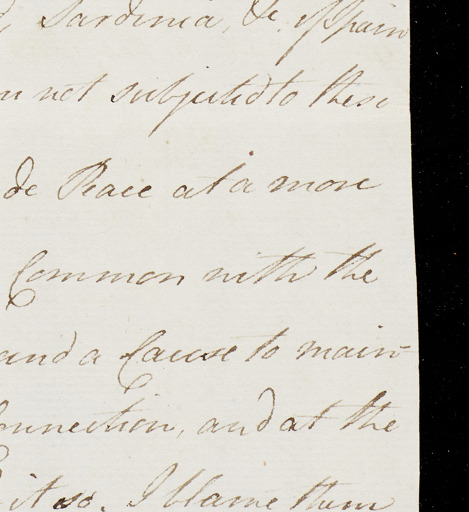 Sardinia, &c. if Spain
not subjected to these
de Peace at a more
Common with the
and a Cause to main-
onnection, and at the
it so. I blame them